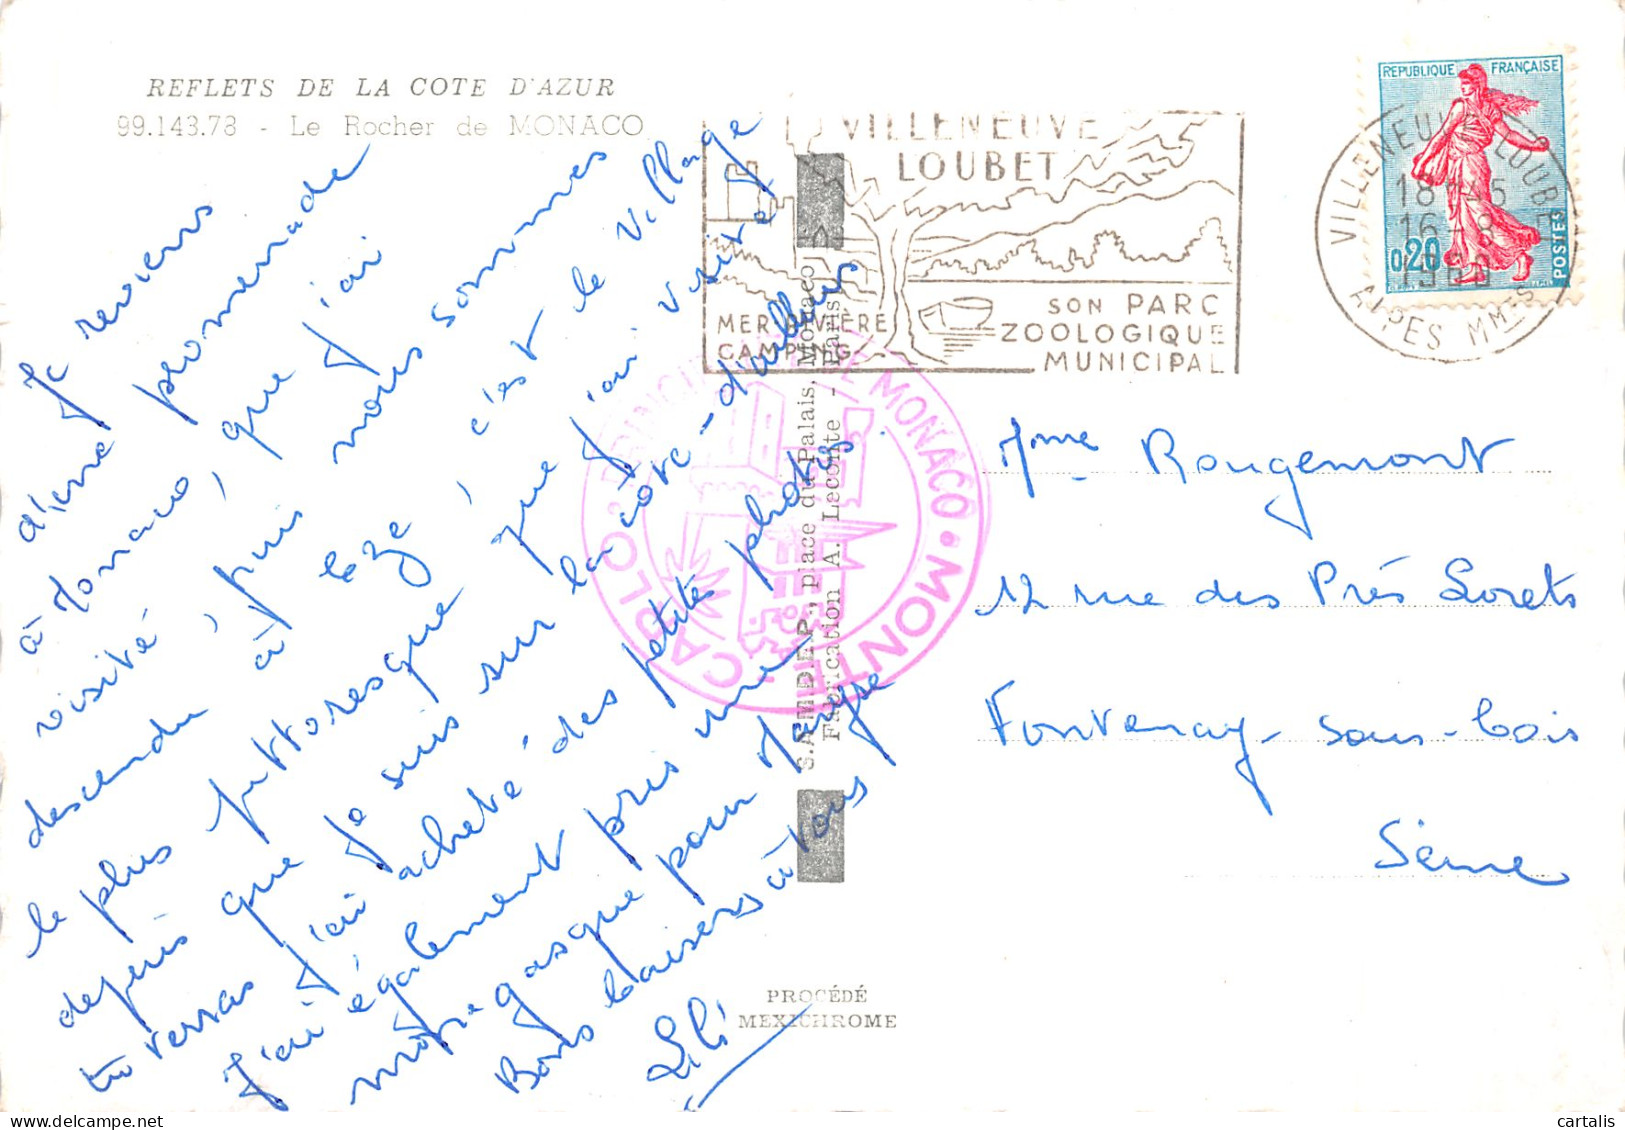 REFLETS DE LA COTE D'AZUR
99.143.78 - Le Rocher de MONACO
Je reviens
d'une promenade
à Monaco, que j'ai
visité, puis nous sommes
descendu à èze, c'est le village
le plus pittoresque que j'ai visité
depuis que je suis sur la côte - d'ailleurs
tu verras j'ai acheté des petites photos.
J'ai également pris une
pour Maryse
Bons baisers à tous
Lili
VILLENEUVE
LOUBET
MER RIVIÈRE
CAMPING
SON PARC
ZOOLOGIQUE
MUNICIPAL
REPUBLIQUE FRANÇAISE
0,20
POSTES
VILLENEUVE LOUBET
18 45
16 - 8
ALPES MMES
PRINCIPAUTÉ DE MONACO • MONTE CARLO •
S.A.M.D.E.P., place du Palais, Monaco
Fabrication A. Leconte - Paris
Mme Rougemont
12 rue des Prés Lorets
Fontenay-sous-bois
Seine
PROCÉDÉ
MEXICHROME
cartalis